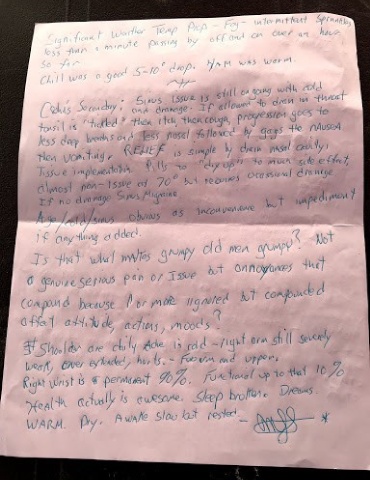 Significant Weather Temp Drop - Fog - intermittent Sprinkling
less than a minute passing by off and on over an hour
so far
Chill was a good 5-10° drop. was warm.
Secondary: Sinus Issue is still ongoing with cold
and drainage. If allowed to drain in throat
tonsil is "tickled" then itch then cough, progression goes to
less deep breaths and less nasal followed by gags the nausea
then vomiting. RELIEF is simple by drain nasal cavity,
Tissue implementation. Pills to "dry up" to much side effect,
almost non-issue at 70° but requires occasional drainage
If no drainage Sinus Migraine
obvious as inconvenience but impediment
if anything added.
Is that what makes grumpy old men grumpy? Not
a genuine serious pain or Issue but annoyances that
compound because 1 or more ignored but compounded
affect attitude, actions, moods?
Shoulder are chilly Ache is cold - right arm still severely
weak, over extended, hurts. - Forearm and upper.
Right Wrist is a permanent 90%. Functional up to that 10%
Health actually is awesome. Sleep broken. Dreams.
WARM. Dry. Awake slow but rested. -